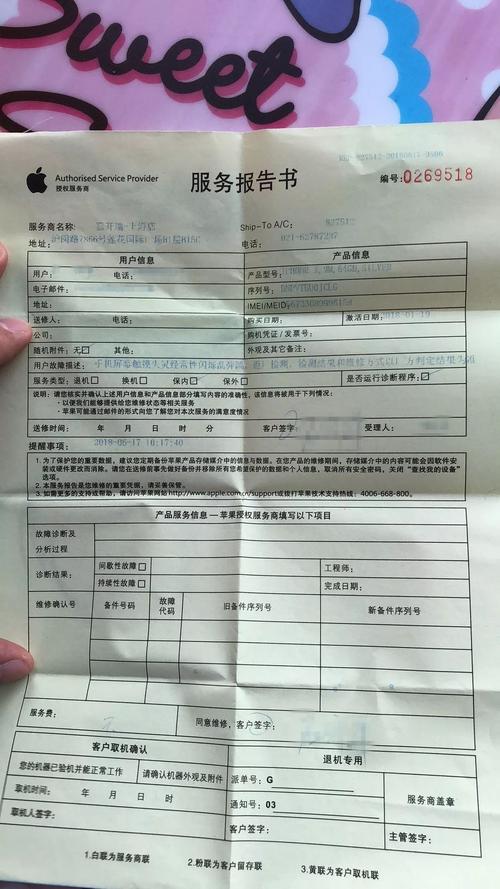 Sweet
Authorised Service Provider
授权服务商
服务报告书
编号:0269518
服务商名称:
Ship-To A/C: 827512
地址:
电话: 021-62787237
用户信息
产品信息
用户: 电话:
产品型号:
电子邮件:
序列号:
地址:
IMEI/MEID:
送修人: 电话:
购买日期: 激活日期:2018-01-19
公司:
购机凭证/发票号:
随机附件:无☑ 其他:
外观及其它备注:
用户故障描述:手机屏幕触摸失灵经常性闪烁乱弹
服务类型:退机□ 换机□ 保内☑ 保外□
是否运行诊断程序:☑
说明:请您核实并确认上述用户信息和产品信息部分填写内容的准确性,该信息将被用于下列情况:
·以便我们能够提供给您维修状态等相关服务
·苹果可能通过邮件的形式向您了解您对本次服务的满意度情况
送修时间: 年 月 日 时 分
客户签字:
受理人:
提醒事项:
2018-06-17 16:17:40
1.为了保护您的重要信息与数据,建议您定期备份苹果产品存储媒介中的信息与数据。在产品的维修期间,存储媒介中的内容可能会因软件安
装或硬件更改而消除。请您在送修前事先做好备份并移除所有您希望保护的数据和个人信息,取消所有安全密码,关闭“查找我的设备”
选项。
2.本服务报告是您维修的重要凭据,请妥善保管。
3.如需更多的支持或帮助,请访问苹果网站http://www.apple.com.cn/support或拨打苹果技术支持热线:4006-668-800。
产品服务信息—苹果授权服务商填写以下项目
故障诊断及
分析过程
诊断结果:
间歇性故障□
持续性故障□
工程师:
完成日期:
维修确认号
备件号码
故障
代码
旧备件序列号
新备件序列号
服务费:
同意维修,客户签字:
客户取机确认
退机专用
您的机器已验机并能正常工作
请确认机器外观及附件
派单号: G
取机时间: 年 月 日 时
通知号: 03
服务商盖章
取机人签字:
客户签字:
主管签字:
1.白联为服务商联
2.粉联为客户留存联
3.黄联为客户取机联